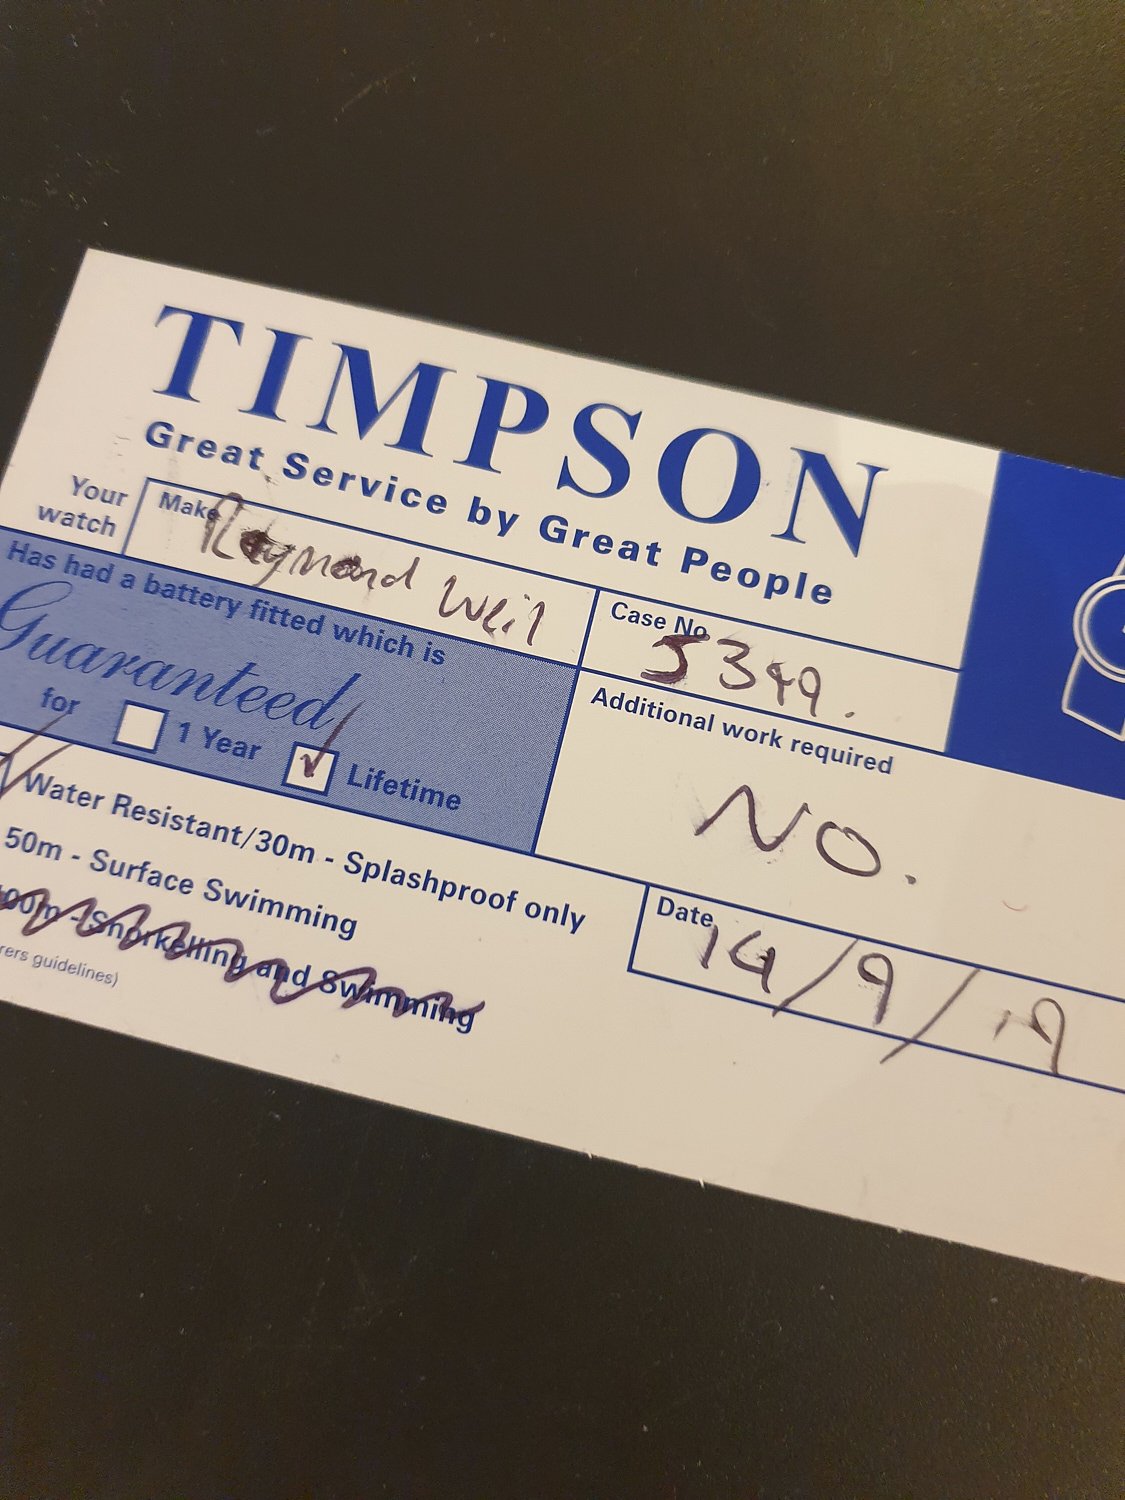 TIMPSON
Great Service by Great People
Your watch
Make Raymond Weil
Case No 5349.
Has had a battery fitted which is
Guaranteed
for 1 Year Lifetime
Additional work required
NO.
Water Resistant/30m - Splashproof only
50m - Surface Swimming
00m - Snorkelling and Swimming
rers guidelines)
Date 14/9/19